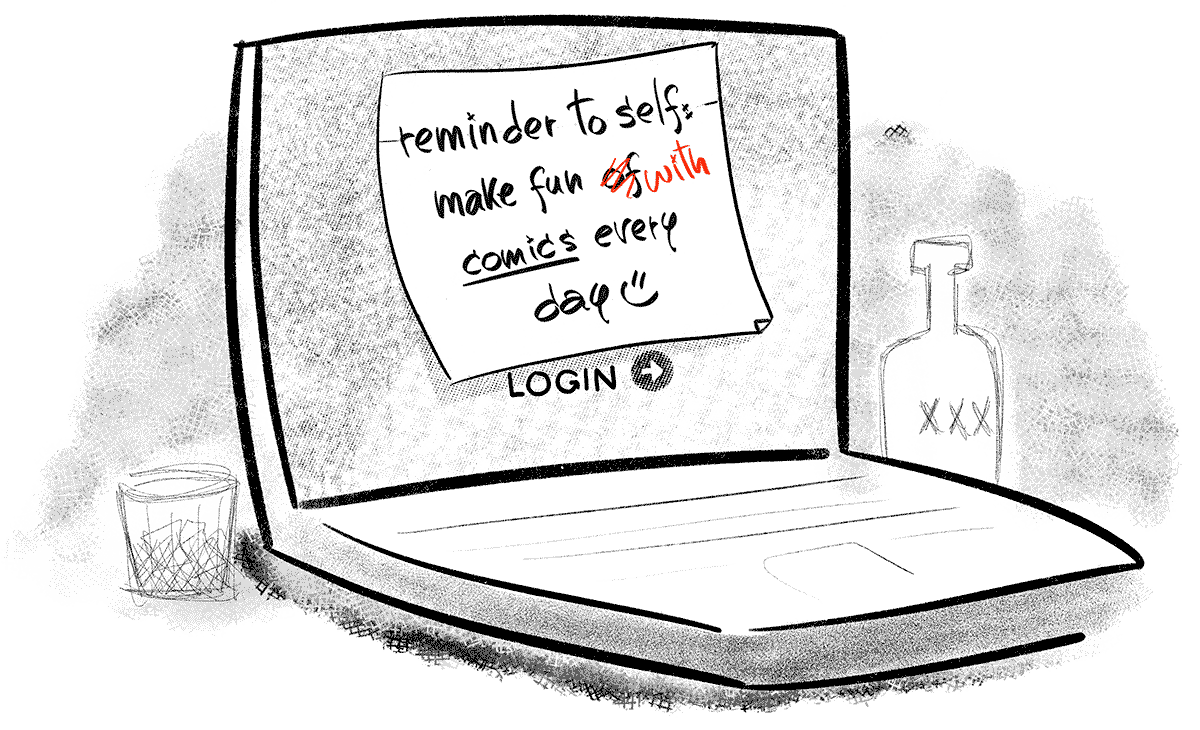 reminder to self:
make fun of with
comics every
day
LOGIN
XXX